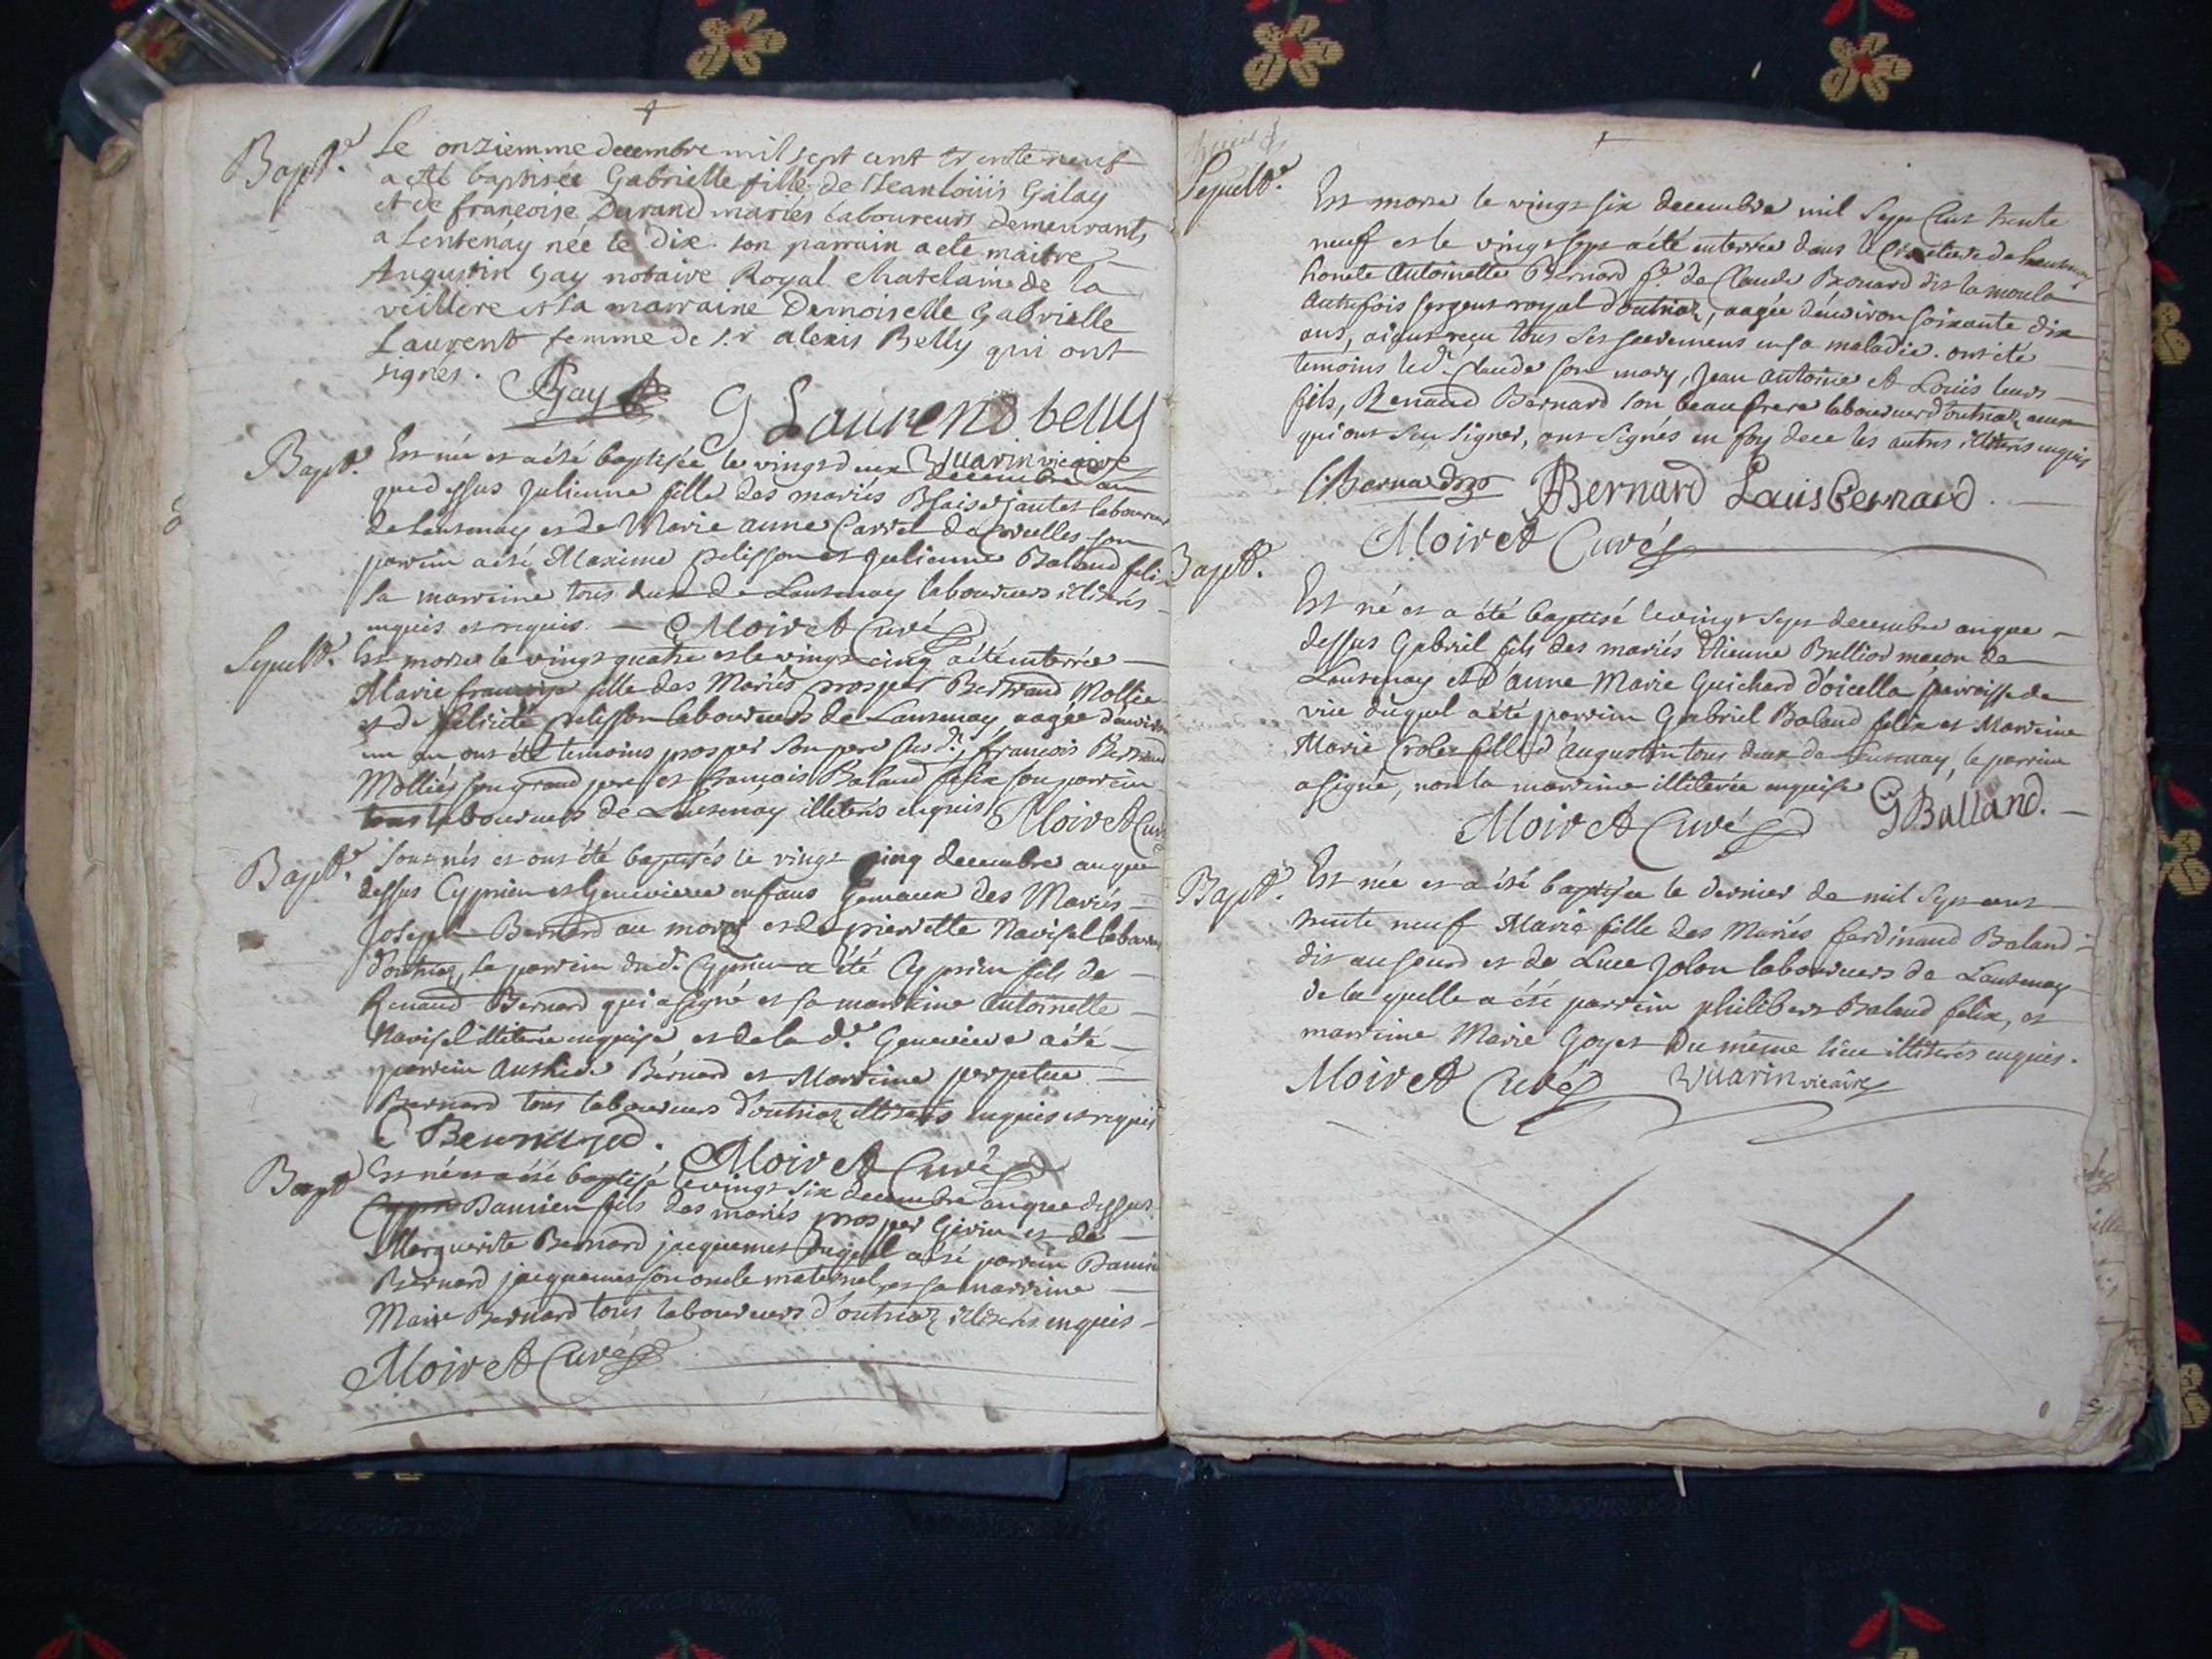 Bapt.e Le onziemme decembre mil sept cent trente neuf
a eté baptisée Gabrielle fille de Jean loüis Galay
et de francoise Durand mariés laboureurs demeurants
a Lentenay née le dix. son parrain a ete maitre
Augustin Gay notaire Royal Chatelain de la
veilliere et sa marraine Demoiselle Gabrielle
Laurent femme de s.r alexis Belly qui ont
signés.
Gay
G Laurens belly
Vuarin vicaire
Bapt. Est née et a été baptisée le vingt deux decembre an
que dessus Julienne fille des mariés Blaise jantet laboureur
de Lantenay et de Marie anne Carret de Corcelles son
parrin a été Maxime pelisson et Julienne Baland feli
sa marreine tous deux de Lantenay laboureurs illiterés
enquis et requis. Moiret Curé
Sepult.e Est morte le vingt quatre et le vingt cinq a été enterrée
Marie francoise fille des Mariés prosper Bertrand Mollie
et de felicité pelisson laboureurs de Lantenay aagée d'environ
un an, ont été temoins prosper son pere sus d., francois Bertrand
Mollier son grand pere et francais Baland felix son parrein
tous laboureurs de Lantenay illiterés enquis Moiret Curé
Bapt.e Sont nés et ont été baptisés le vingt cinq decembre an que
dessus Cyprien et Genevieve enfans Gemeaux des Mariés
Joseph Bernard au moret et de pierrette Navisel laboureurs
d'outriaz, le parrein du d. Cyprien a été Cyprien fils de
Renaud Bernard qui a signé et sa marreine Antoinette
Navisel illiterée enquise et de la d.e Genevieve a été
parrein Anthide Bernard et Marreine perpetue
Bernard tous laboureurs d'outriaz illiterés enquis et requis
C Bernard. Moiret Curé
Bapt Est né et a été baptisé le vingt six decembre an que dessus
Damien fils des mariés prosper Girin et de
Marguerite Bernard jacquemet duquel a été parrein Damien
Bernard jacquemet son oncle maternel, et sa marreine
Marie Bernard tous laboureurs d'outriaz illiterés enquis
Moiret Curé
Sepult.e Est morte le vingt six decembre mil sept Cent trente
neuf et le vingt sept a été enterrée dans le Cimetiere de Lantenay
honete Antoinette Bernard f.e de Claude Bernard dit la moula
autrefois sergent royal d'outriaz, aagée d'environ soixante dix
ans, aiant reçu tous ses sacremens en sa maladie. ont été
temoins le d. Claude son mary, Jean antoine et Louis leurs
fils, Renaud Bernard son beau frere laboureur d'outriaz ceux
qui ont sçu signer, ont signés en foy de ce les autres illiterés enquis
C Bernard JBernard Louis bernard
Moiret Curé
Bapt.e
Est né et a été baptisé le vingt sept decembre an que
dessus Gabriel fils des mariés Etienne Bulliod maçon de
Lantenay et d'anne Marie Guichard d'oicella parroisse de
vie duquel a été parrein Gabriel Baland felix et Marreine
Marie Crolet fille d'augustin tous deux de Lantenay, le parrein
a signé, non la marreine illiterée enquise GBalland.
Moiret Curé
Bapt.e Est née et a été baptisée le dernier de mil sept cent
trente neuf Marie fille des Mariés ferdinand Baland
dit au sourd et de Luce Jolon laboureurs de Lantenay
de la quelle a été parrein philibert Baland felix, et
marreine Marie Goyet du même lieu illiterés enquis.
Moiret Curé Vuarin vicaire